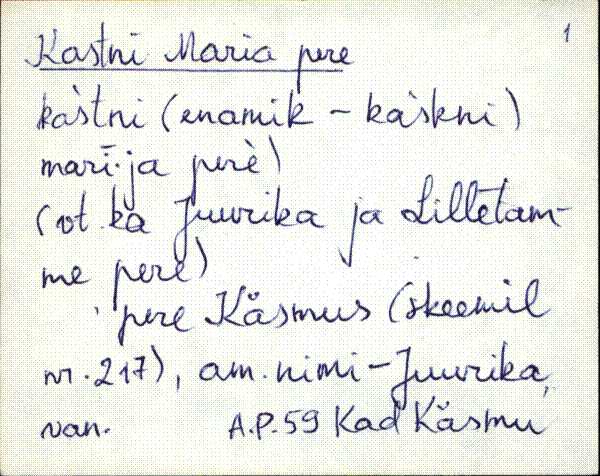 1
Kastni Maria pere
kàstni (enamik – kàskni)
marī·ja perè)
(vt. ka Juurika ja Lilletam-
me pere)
pere Käsmus (skeemil
nr. 217), am. nimi – Juurika,
van. A.P. 59 Kad Käsmu